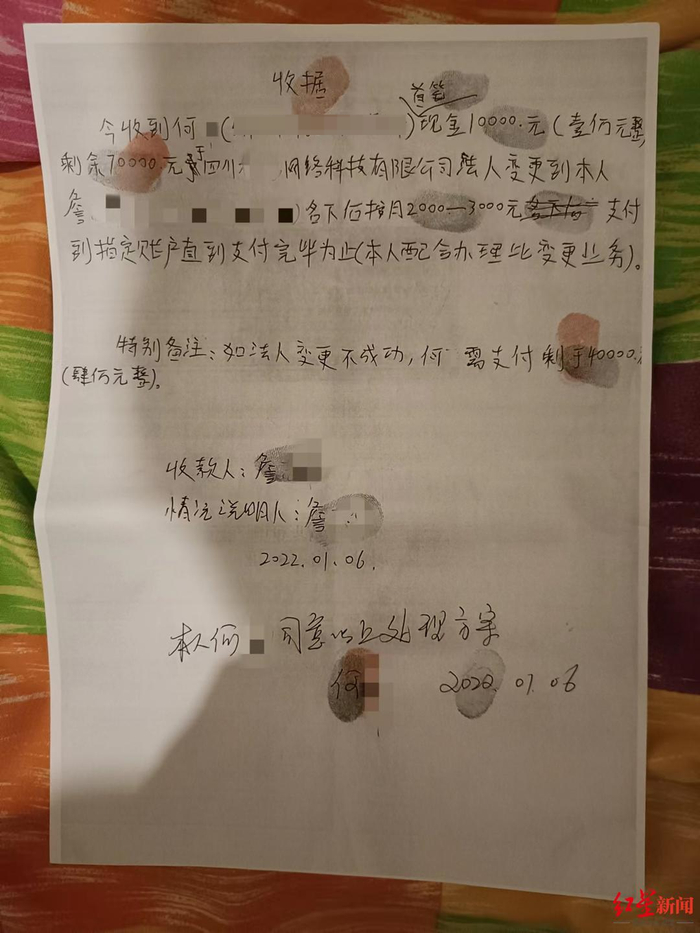 收据
首笔
今收到何 ( )现金10000.元(壹万元整,
剩余70000.元于四川 网络科技有限公司法人变更到本人
詹 )名下后按月2000—3000元名下后支付
到指定账户直到支付完毕为止(本人配合办理此变更业务)。
特别备注:如法人变更不成功,何 需支付剩于40000.
(肆万元整)。
收款人:詹
情况说明人:詹
2022.01.06.
本人何 同意以上处理方案
何 2022.01.06
红星新闻